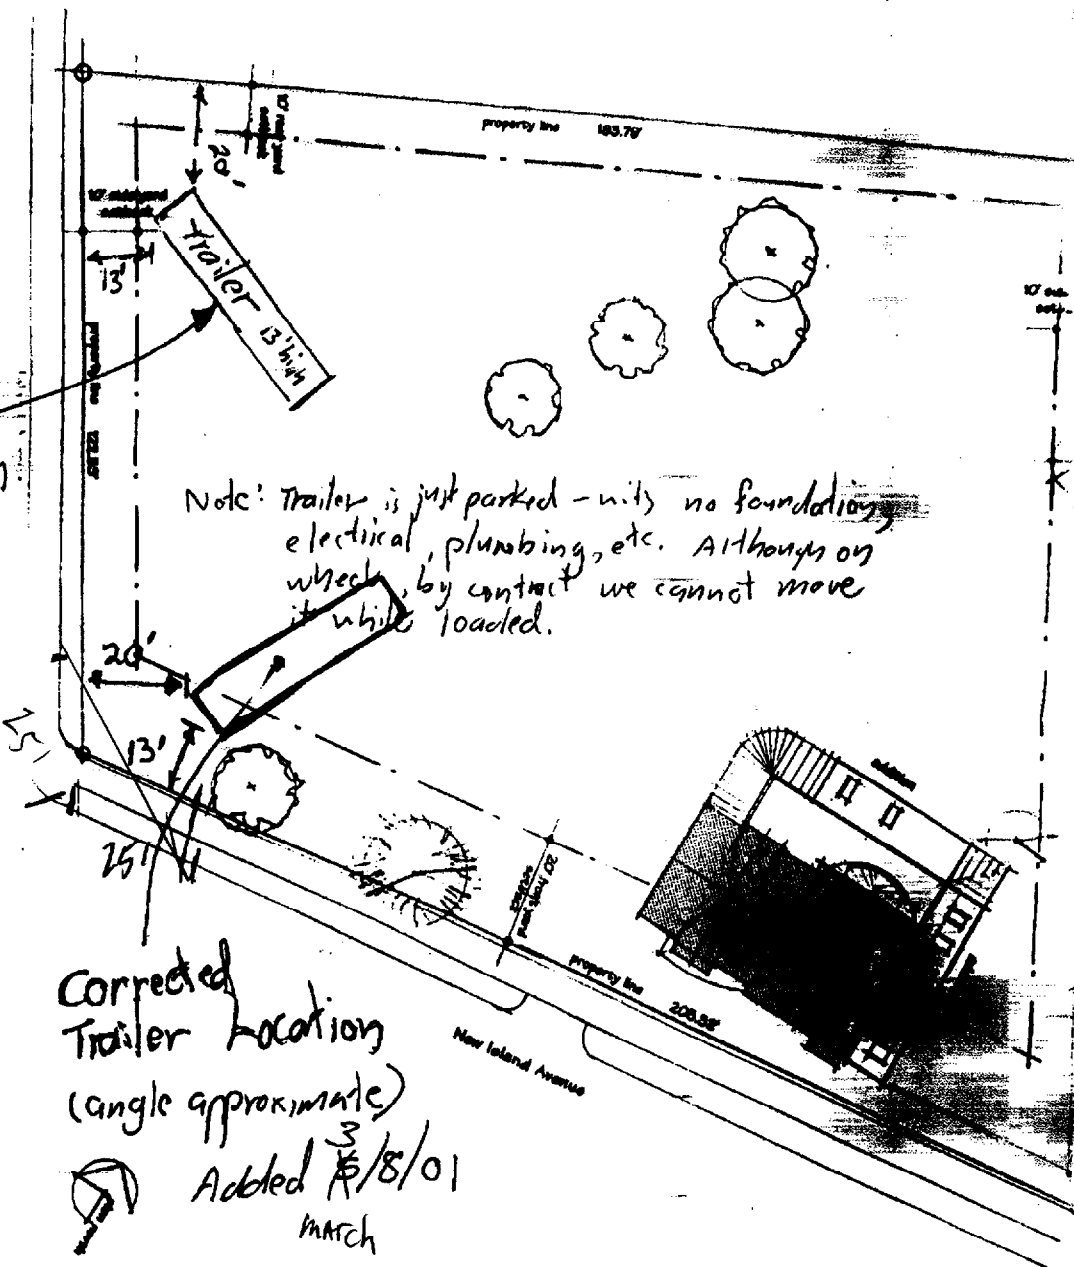 property line 183.79'
10' rear yard
setback
20'
10' sideyard
setback
13'
Trailer
13' high
10'
property line
Note: Trailer is just parked - no foundation,
electrical, plumbing, etc. Although on
wheels, by contract we cannot move
it while loaded.
20'
13'
25'
25'
addition
20' front yard
setback
property line 208.98'
New Island Avenue
Corrected
Trailer Location
(angle approximate)
Added 3/8/01
March